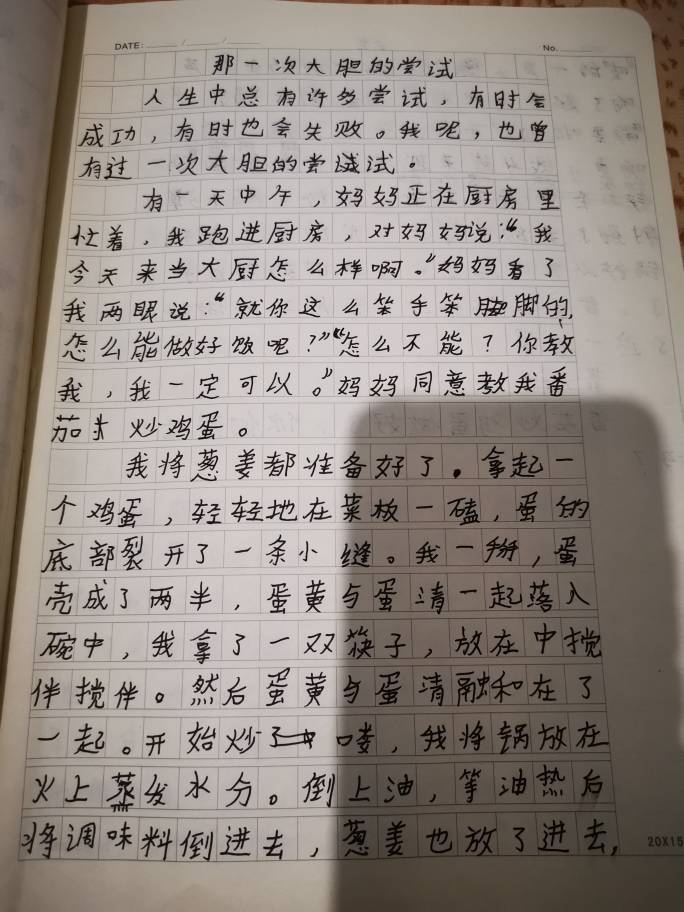 DATE: / /
No.
那一次大胆的尝试
人生中总有许多尝试，有时会
成功，有时也会失败。我呢，也曾
有过一次大胆的尝试。
有一天中午，妈妈正在厨房里
忙着，我跑进厨房，对妈妈说：“我
今天来当大厨怎么样啊。”妈妈看了
我两眼说：“就你这么笨手笨脚的，
怎么能做好饭呢？”“怎么不能？你教
我，我一定可以。”妈妈同意教我番
茄炒鸡蛋。
我将葱姜都准备好了。拿起一
个鸡蛋，轻轻地在菜板一磕，蛋的
底部裂开了一条小缝。我一掰，蛋
壳成了两半，蛋黄与蛋清一起落入
碗中，我拿了一双筷子，放在中搅
伴搅伴。然后蛋黄与蛋清融和在了
一起。开始炒喽，我将锅放在
火上蒸发水分。倒上油，等油热后
将调味料倒进去，葱姜也放了进去，
20X15